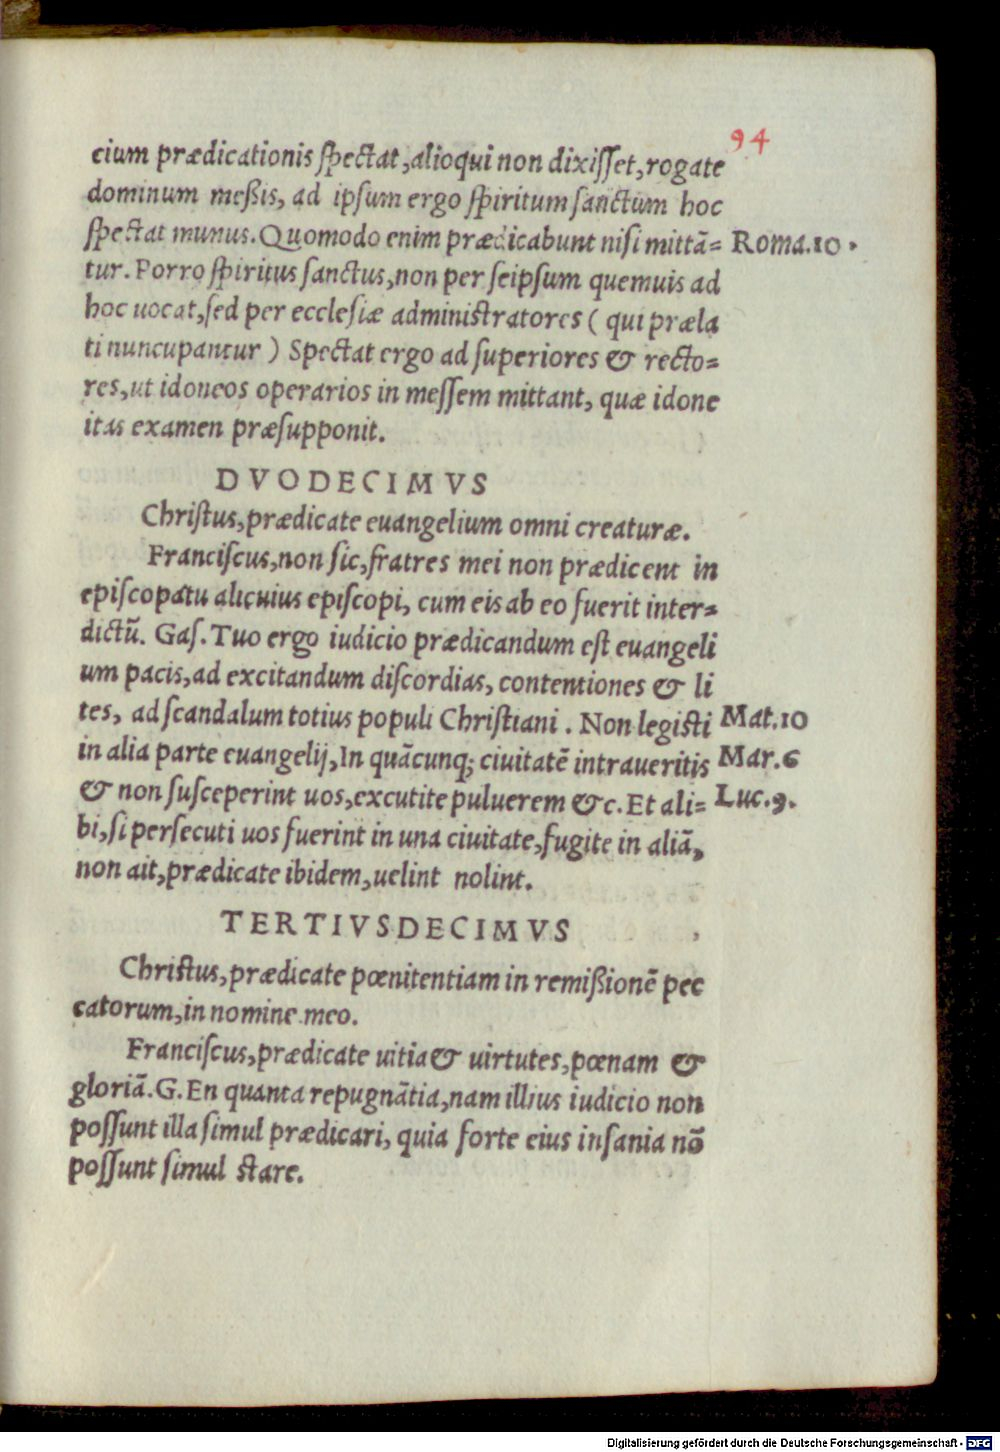 94
cium prædicationis ſpectat, alioqui non dixiſſet, rogate
dominum meßis, ad ipſum ergo ſpiritum ſanctum hoc
ſpectat munus. Quomodo enim prædicabunt niſi mittā= Roma.10.
tur. Porro ſpiritus ſanctus, non per ſeipſum quemuis ad
hoc uocat, ſed per eccleſiæ adminiſtratores ( qui præla
ti nuncupantur ) Spectat ergo ad ſuperiores & recto=
res, ut idoneos operarios in meſſem mittant, quæ idone
itas examen præſupponit.
DVODECIMVS
Chriſtus, prædicate euangelium omni creaturæ.
Franciſcus, non ſic, fratres mei non prædicent in
epiſcopatu alicuius epiſcopi, cum eis ab eo fuerit inter=
dictū. Gaſ. Tuo ergo iudicio prædicandum eſt euangeli
um pacis, ad excitandum diſcordias, contentiones & li
tes, ad ſcandalum totius populi Chriſtiani. Non legiſti Mat.10
in alia parte euangelij, In quācunq; ciuitatē intraueritis Mar.6
& non ſuſceperint uos, excutite puluerem &c. Et ali= Luc.9.
bi, ſi perſecuti uos fuerint in una ciuitate, fugite in aliā,
non ait, prædicate ibidem, uelint nolint.
TERTIVSDECIMVS
Chriſtus, prædicate pœnitentiam in remißionē pec
catorum, in nomine meo.
Franciſcus, prædicate uitia & uirtutes, pœnam &
gloriā. G. En quanta repugnātia, nam illius iudicio non
poſſunt illa ſimul prædicari, quia forte eius inſania nō
poſſunt ſimul ſtare.
Digitalisierung gefördert durch die Deutsche Forschungsgemeinschaft - DFG